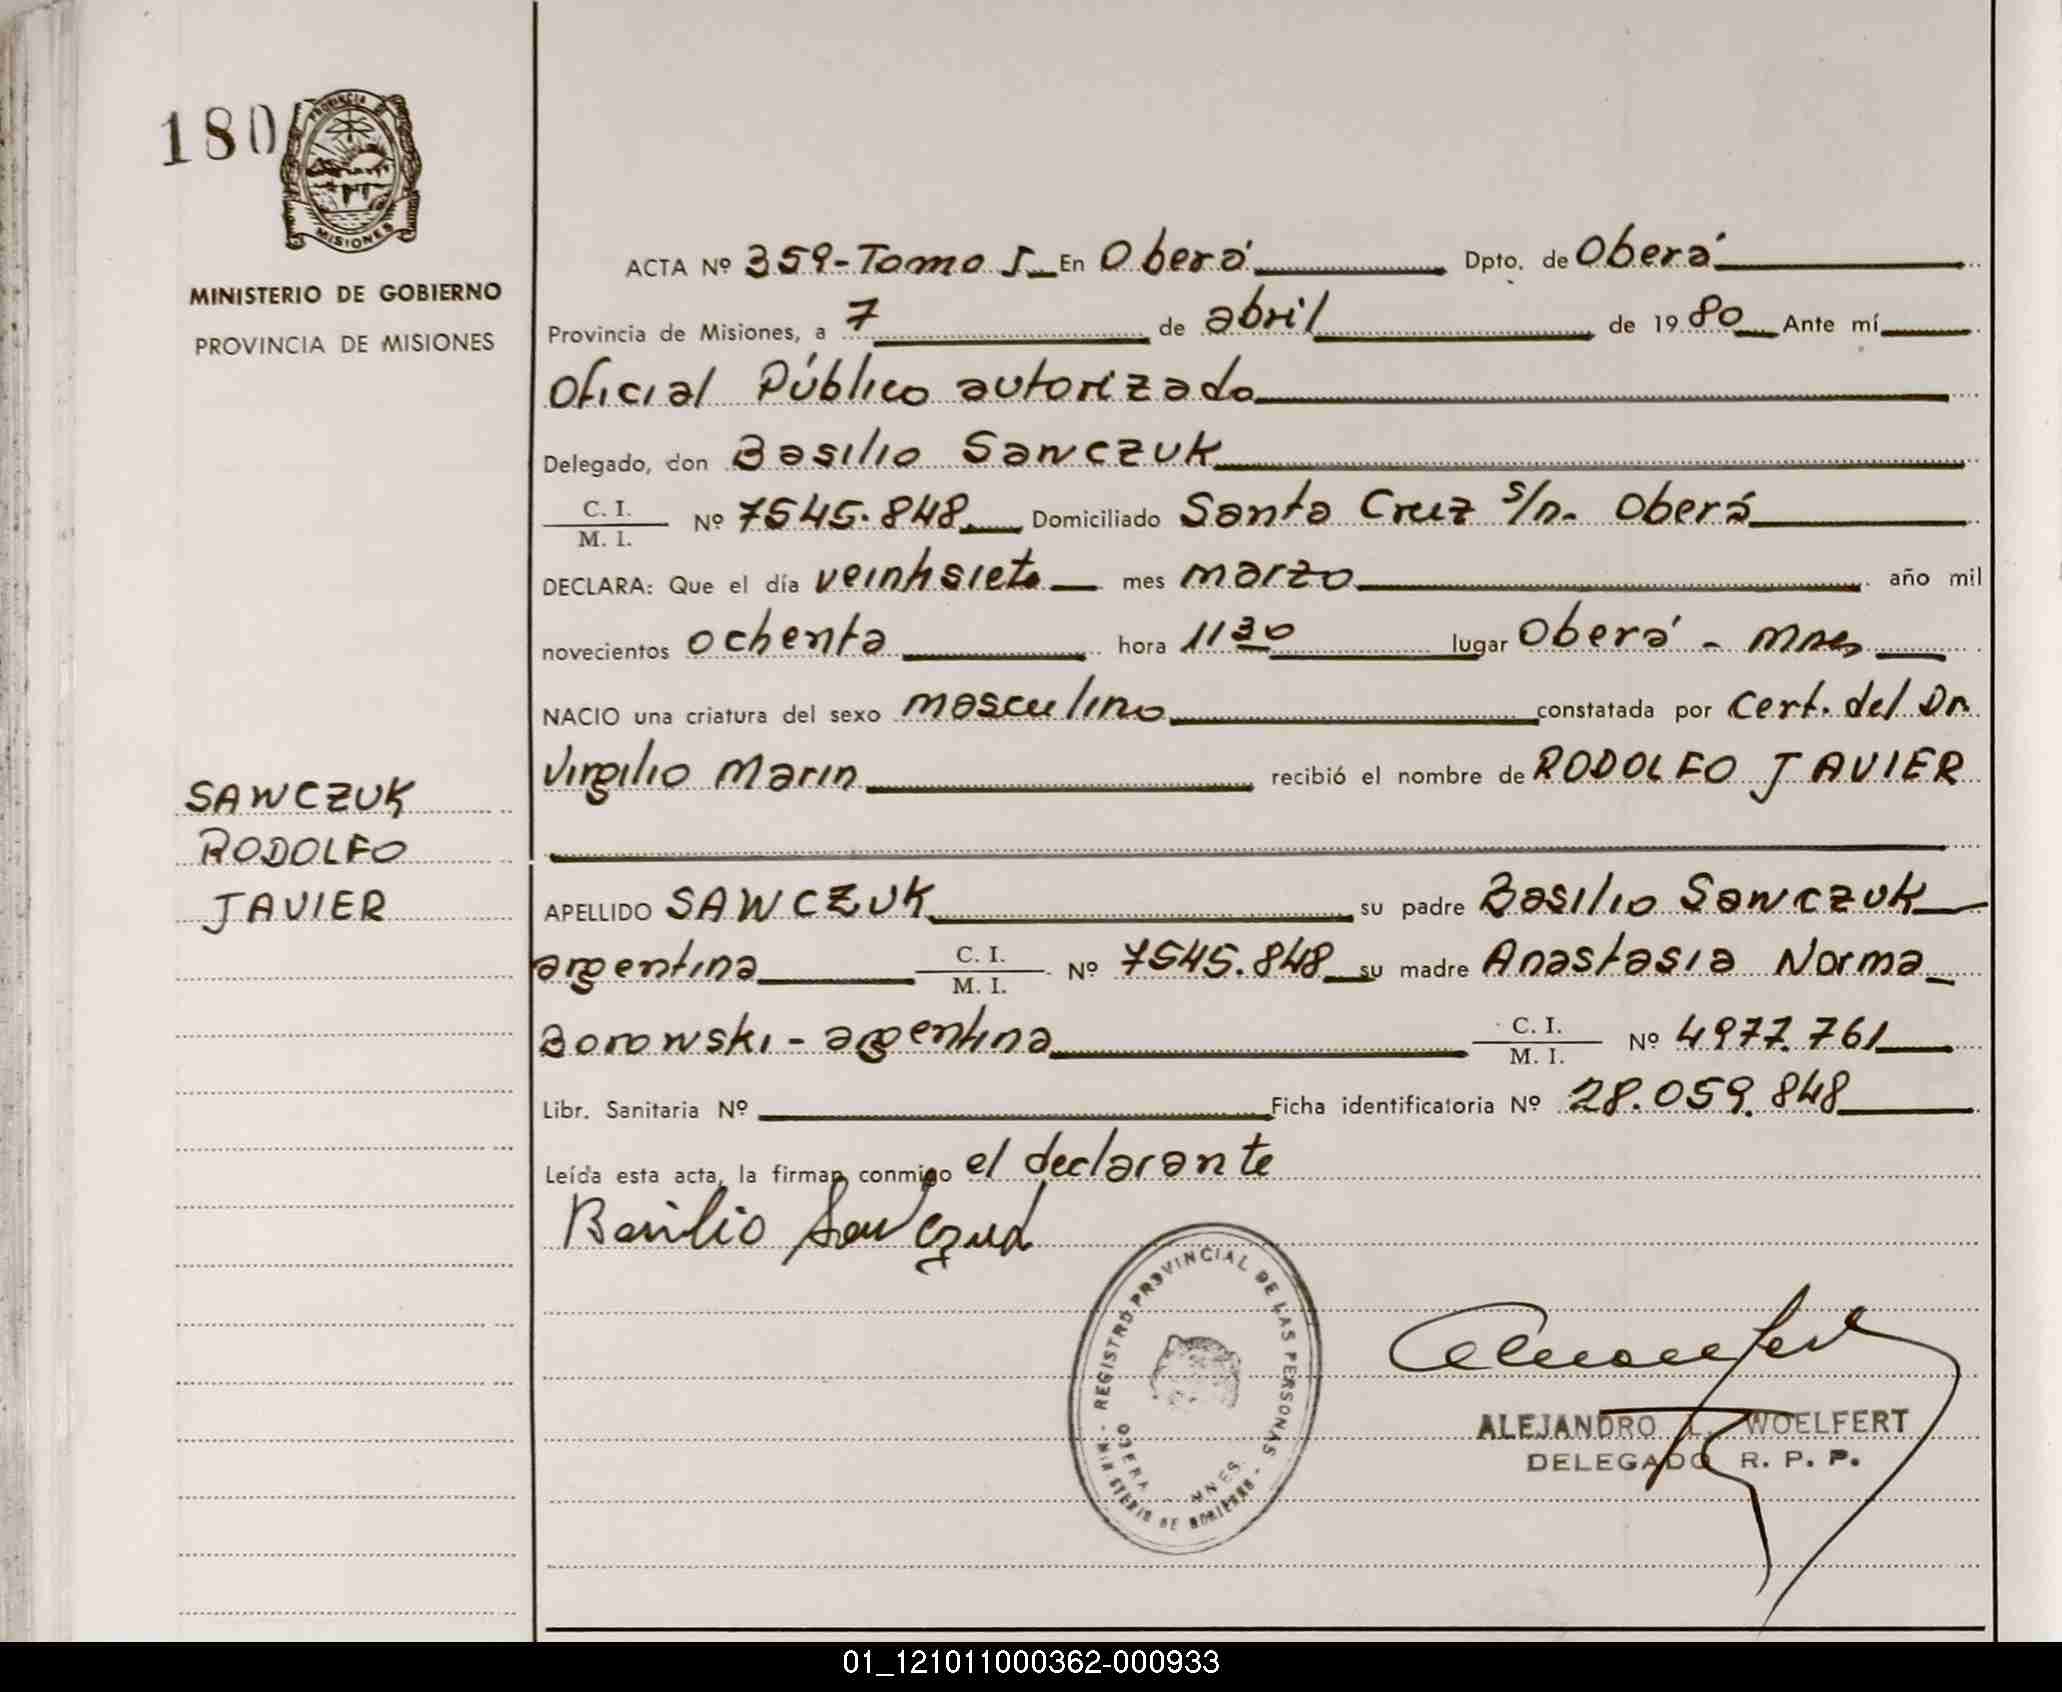 180
PROVINCIA DE
MISIONES
MINISTERIO DE GOBIERNO
PROVINCIA DE MISIONES
SAWCZUK
RODOLFO
JAVIER
ACTA Nº 359-Tomo I En Oberá Dpto. de Oberá
Provincia de Misiones, a 7 de abril de 1980 Ante mí
Oficial Público autorizado
Delegado, don Basilio Sawczuk
C. I.
M. I. Nº 7545.848 Domiciliado Santa Cruz s/n. Oberá
DECLARA: Que el día veintisiete mes marzo año mil
novecientos ochenta hora 11 30 lugar Oberá - Mnes
NACIO una criatura del sexo masculino constatada por Cert. del Dr.
Virgilio Marin recibió el nombre de RODOLFO JAVIER
APELLIDO SAWCZUK su padre Basilio Sawczuk
argentina C. I.
M. I. Nº 7545.848 su madre Anastasia Norma
Borowski - argentina C. I.
M. I. Nº 4977.761
Libr. Sanitaria Nº Ficha identificatoria Nº 28.059.848
Leída esta acta, la firman conmigo el declarante
Basilio Sawczuk
REGISTRO PROVINCIAL DE LAS PERSONAS
OBERA MNES.
MINISTERIO DE GOBIERNO
ALEJANDRO L. WOELFERT
DELEGADO R. P. P.
01_121011000362-000933